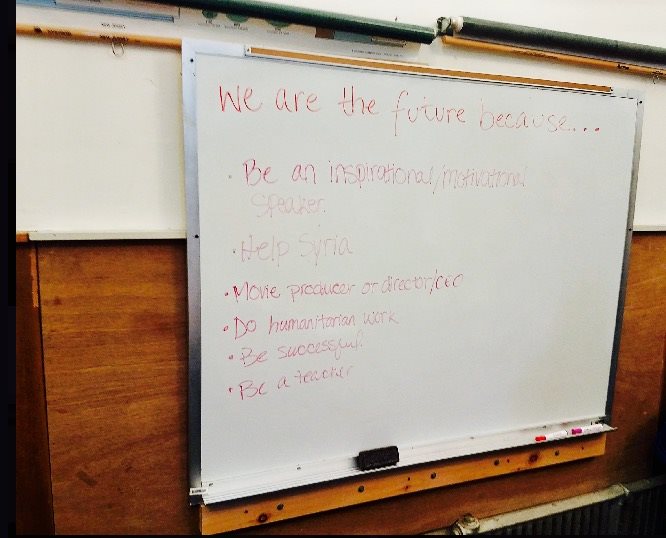 We are the future because...
• Be an inspirational/motivational
speaker.
• Help Syria
• Movie producer or director/CEO
• Do humanitarian work
• Be successful!
• Be a teacher